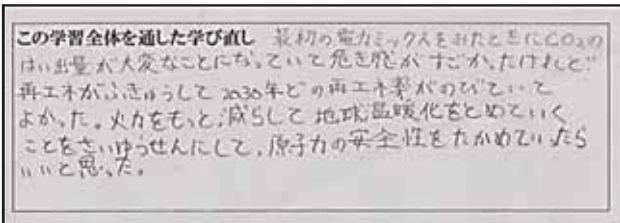 この学習全体を通した学び直し 最初の電力ミックスをみたときにCO2の
はい出量が大変なことになっていて危き感がすごかったけれど!!
再エネがふきゅうして2030年どの再エネ率がのびていて
よかった。火力をもっと減らして地球温暖化をとめていく
ことをさいゆうせんにして、原子力の安全性をたかめていったら
いいと思った。